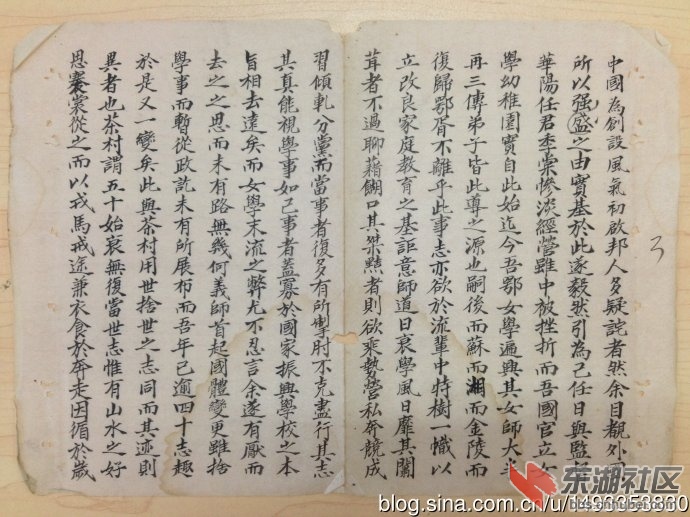 中國為創設風氣初啟邦人多疑詫者然余目覩外
所以强盛之由實基於此遂毅然引為己任日與監
華陽任君季棠慘淡經營雖中被挫折而吾國官立女
學幼稚園實自此始迄今吾鄂女學遍興其女師大半
再三傳弟子皆此導之源也嗣後而蘇而湘而金陵而
復歸鄂胥不離乎此事志亦欲於流輩中特樹一幟以
立改良家庭教育之基詎意師道日衰學風日靡其闒
茸者不過聊藉餬口其桀黠者則欲乘勢營私奔競成
習傾軋分黨而當事者復多有所掣肘不克盡行其志
其真能視學事如己事者蓋寡於國家振興學校之本
旨相去遠矣而女學末流之弊尤不忍言余遂有厭而
去之之思而未有路無幾何義師首起國體變更雖捨
學事而暫從政訖未有所展布而吾年已逾四十志趣
於是又一變矣此與茶村用世捨世之志同而其迹則
異者也茶村謂五十始衰無復當世志惟有山水之好
恩褰裳從之而以戎馬戒途兼衣食於奔走因循於歲
3
东湖社区
bbs.cnhubei.com
blog.sina.com.cn/u/1496353830